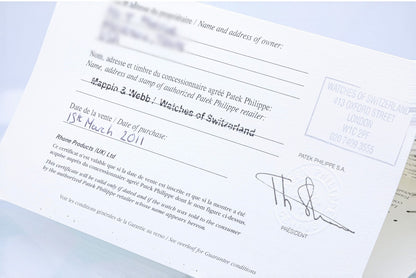 adresse du propriétaire / Name and address of owner:
Nom, adresse et timbre du concessionnaire agréé Patek Philippe:
Name, address and stamp of authorized Patek Philippe retailer:
Mappin & Webb / Watches of Switzerland
Date de la vente / Date of purchase:
15th March 2011
Rhone Products (UK) Ltd
Ce certificat n'est valable que si la date de vente est inscrite et que la montre a été
acquise auprès du concessionnaire agréé Patek Philippe dont le nom figure ci-dessus.
This certificate will be valid only if dated and if the watch was sold to the consumer
by the authorized Patek Philippe retailer whose name appears hereon.
Voir les conditions générales de la Garantie au verso / See overleaf for Guarantee conditions
WATCHES OF SWITZERLAND
OXFORD STREET
LONDON
W1C 2PF
PATEK PHILIPPE S.A.
PRÉSIDENT